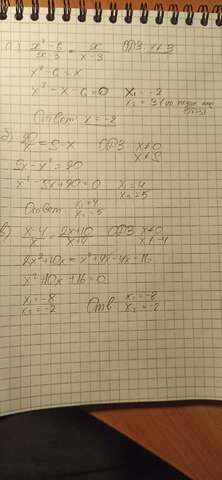 а) x² - 6 / x - 3 = x / x - 3 ОДЗ x ≠ 3
x² - 6 = x
x² - x - 6 = 0 x₁ = -2
x₂ = 3
Ответ: x = -2
б) = 5 - x ОДЗ x ≠ 0
5x - x² = 20
x² - 5x + 20 = 0 x₁ = 4
x₂ = 5
Ответ x₁ = 4
x₂ = -5
в) x - 4 / x = 2x + 10 / x + 4 ОДЗ x ≠ 0
x ≠ -4
2x² + 10x = x² + 4x - 4x - 16
x² + 10x + 16 = 0
x₁ = -8
x₂ = -2 Отв x₁ = -8
x₂ = -2